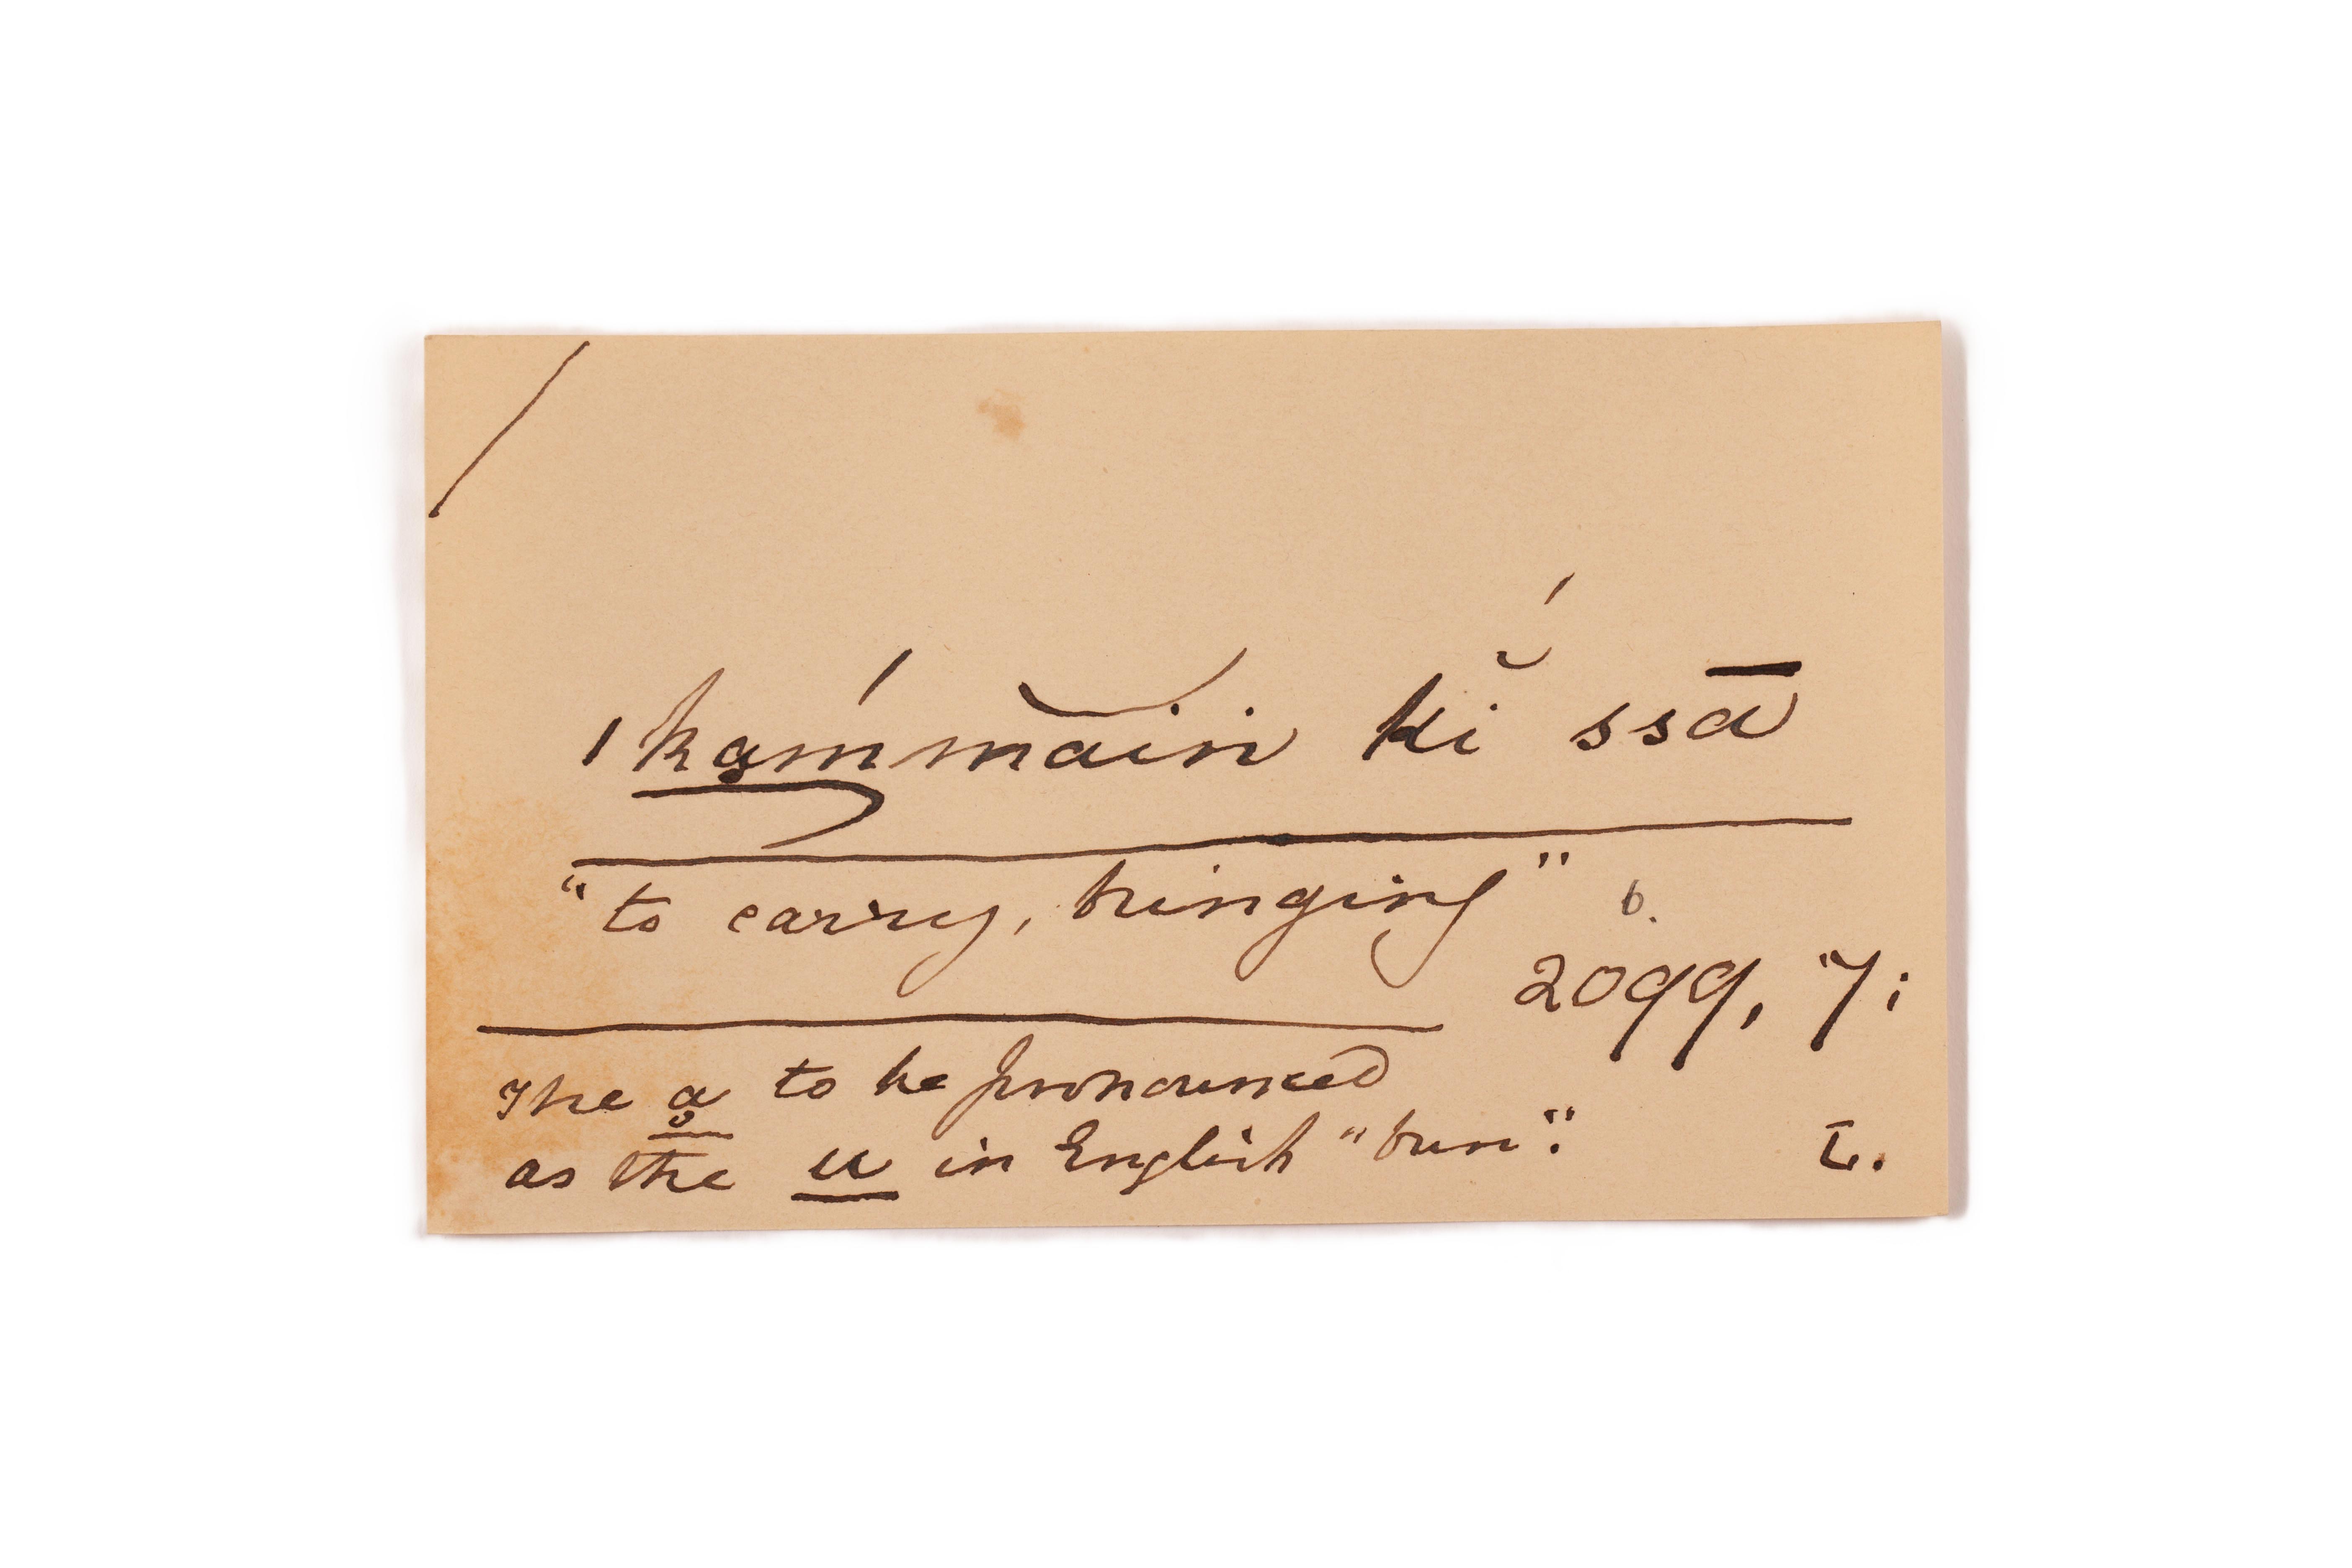 /
ˈkḁḿmăin kĭ́ ssā
"to carry, bringing" b.
2099, 7;
The ḁ to be pronounced
as the u in English "bun". L.